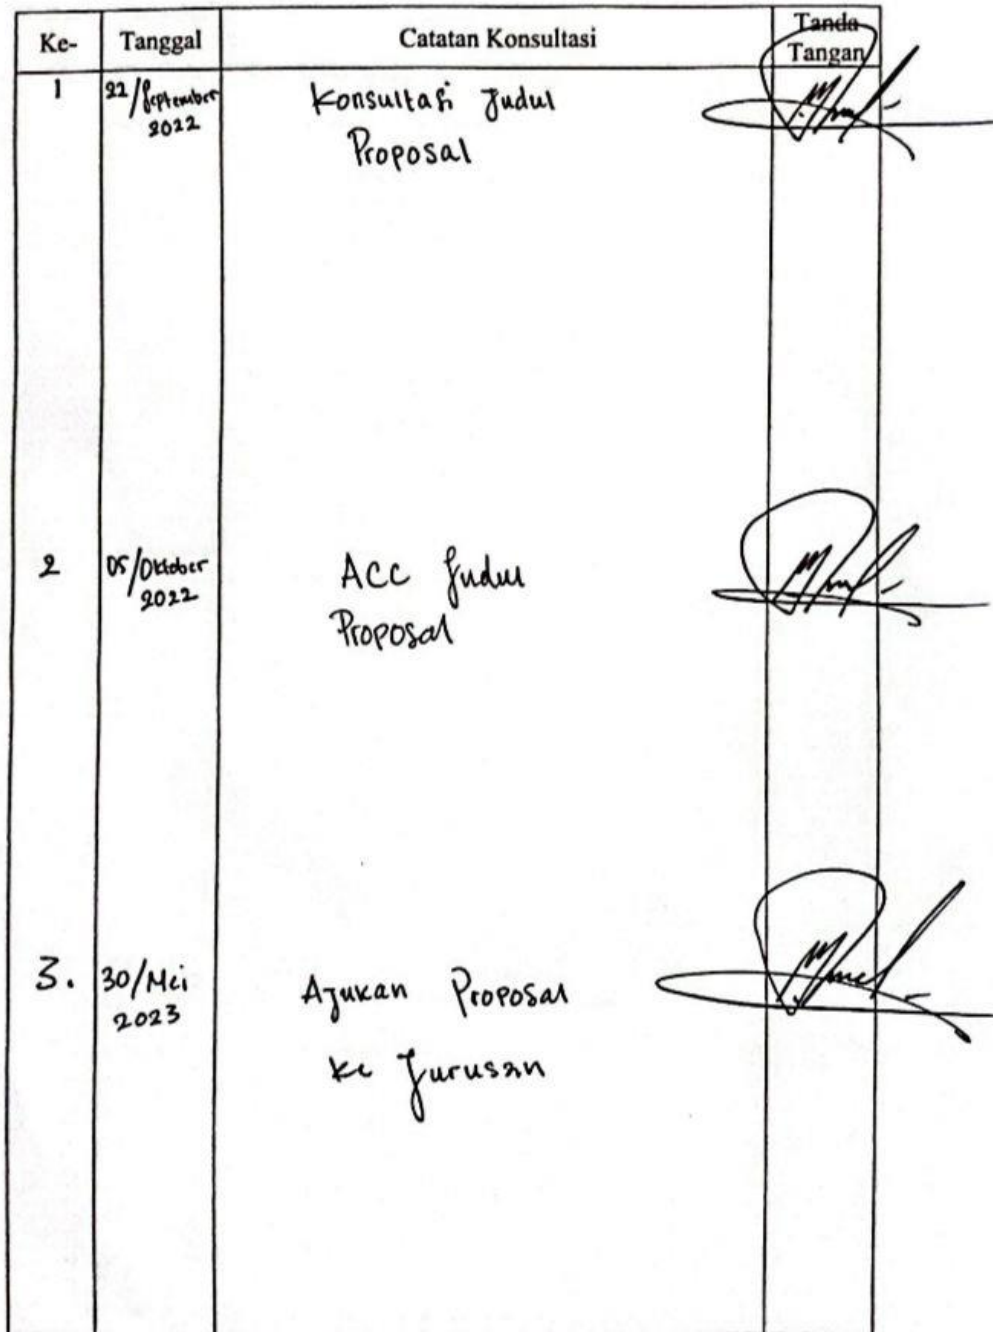 Ke- Tanggal Catatan Konsultasi Tanda
Tangan
1 22/September Konsultasi Judul
2022 Proposal
2 05/Oktober ACC Judul
2022 Proposal
3. 30/Mei Ajukan Proposal
2023
ke Jurusan